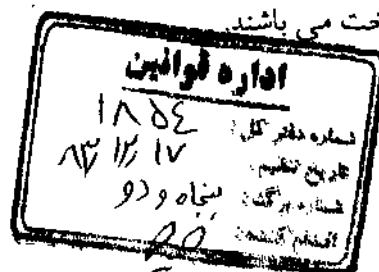 خت می باشند.
اداره قوانین
شماره دفتر کل: ۱۸۵۴
تاریخ تنظیم: ۸۳/۱۲/۱۷
شماره برگشت: پنجاه و دو
اقدام کننده: